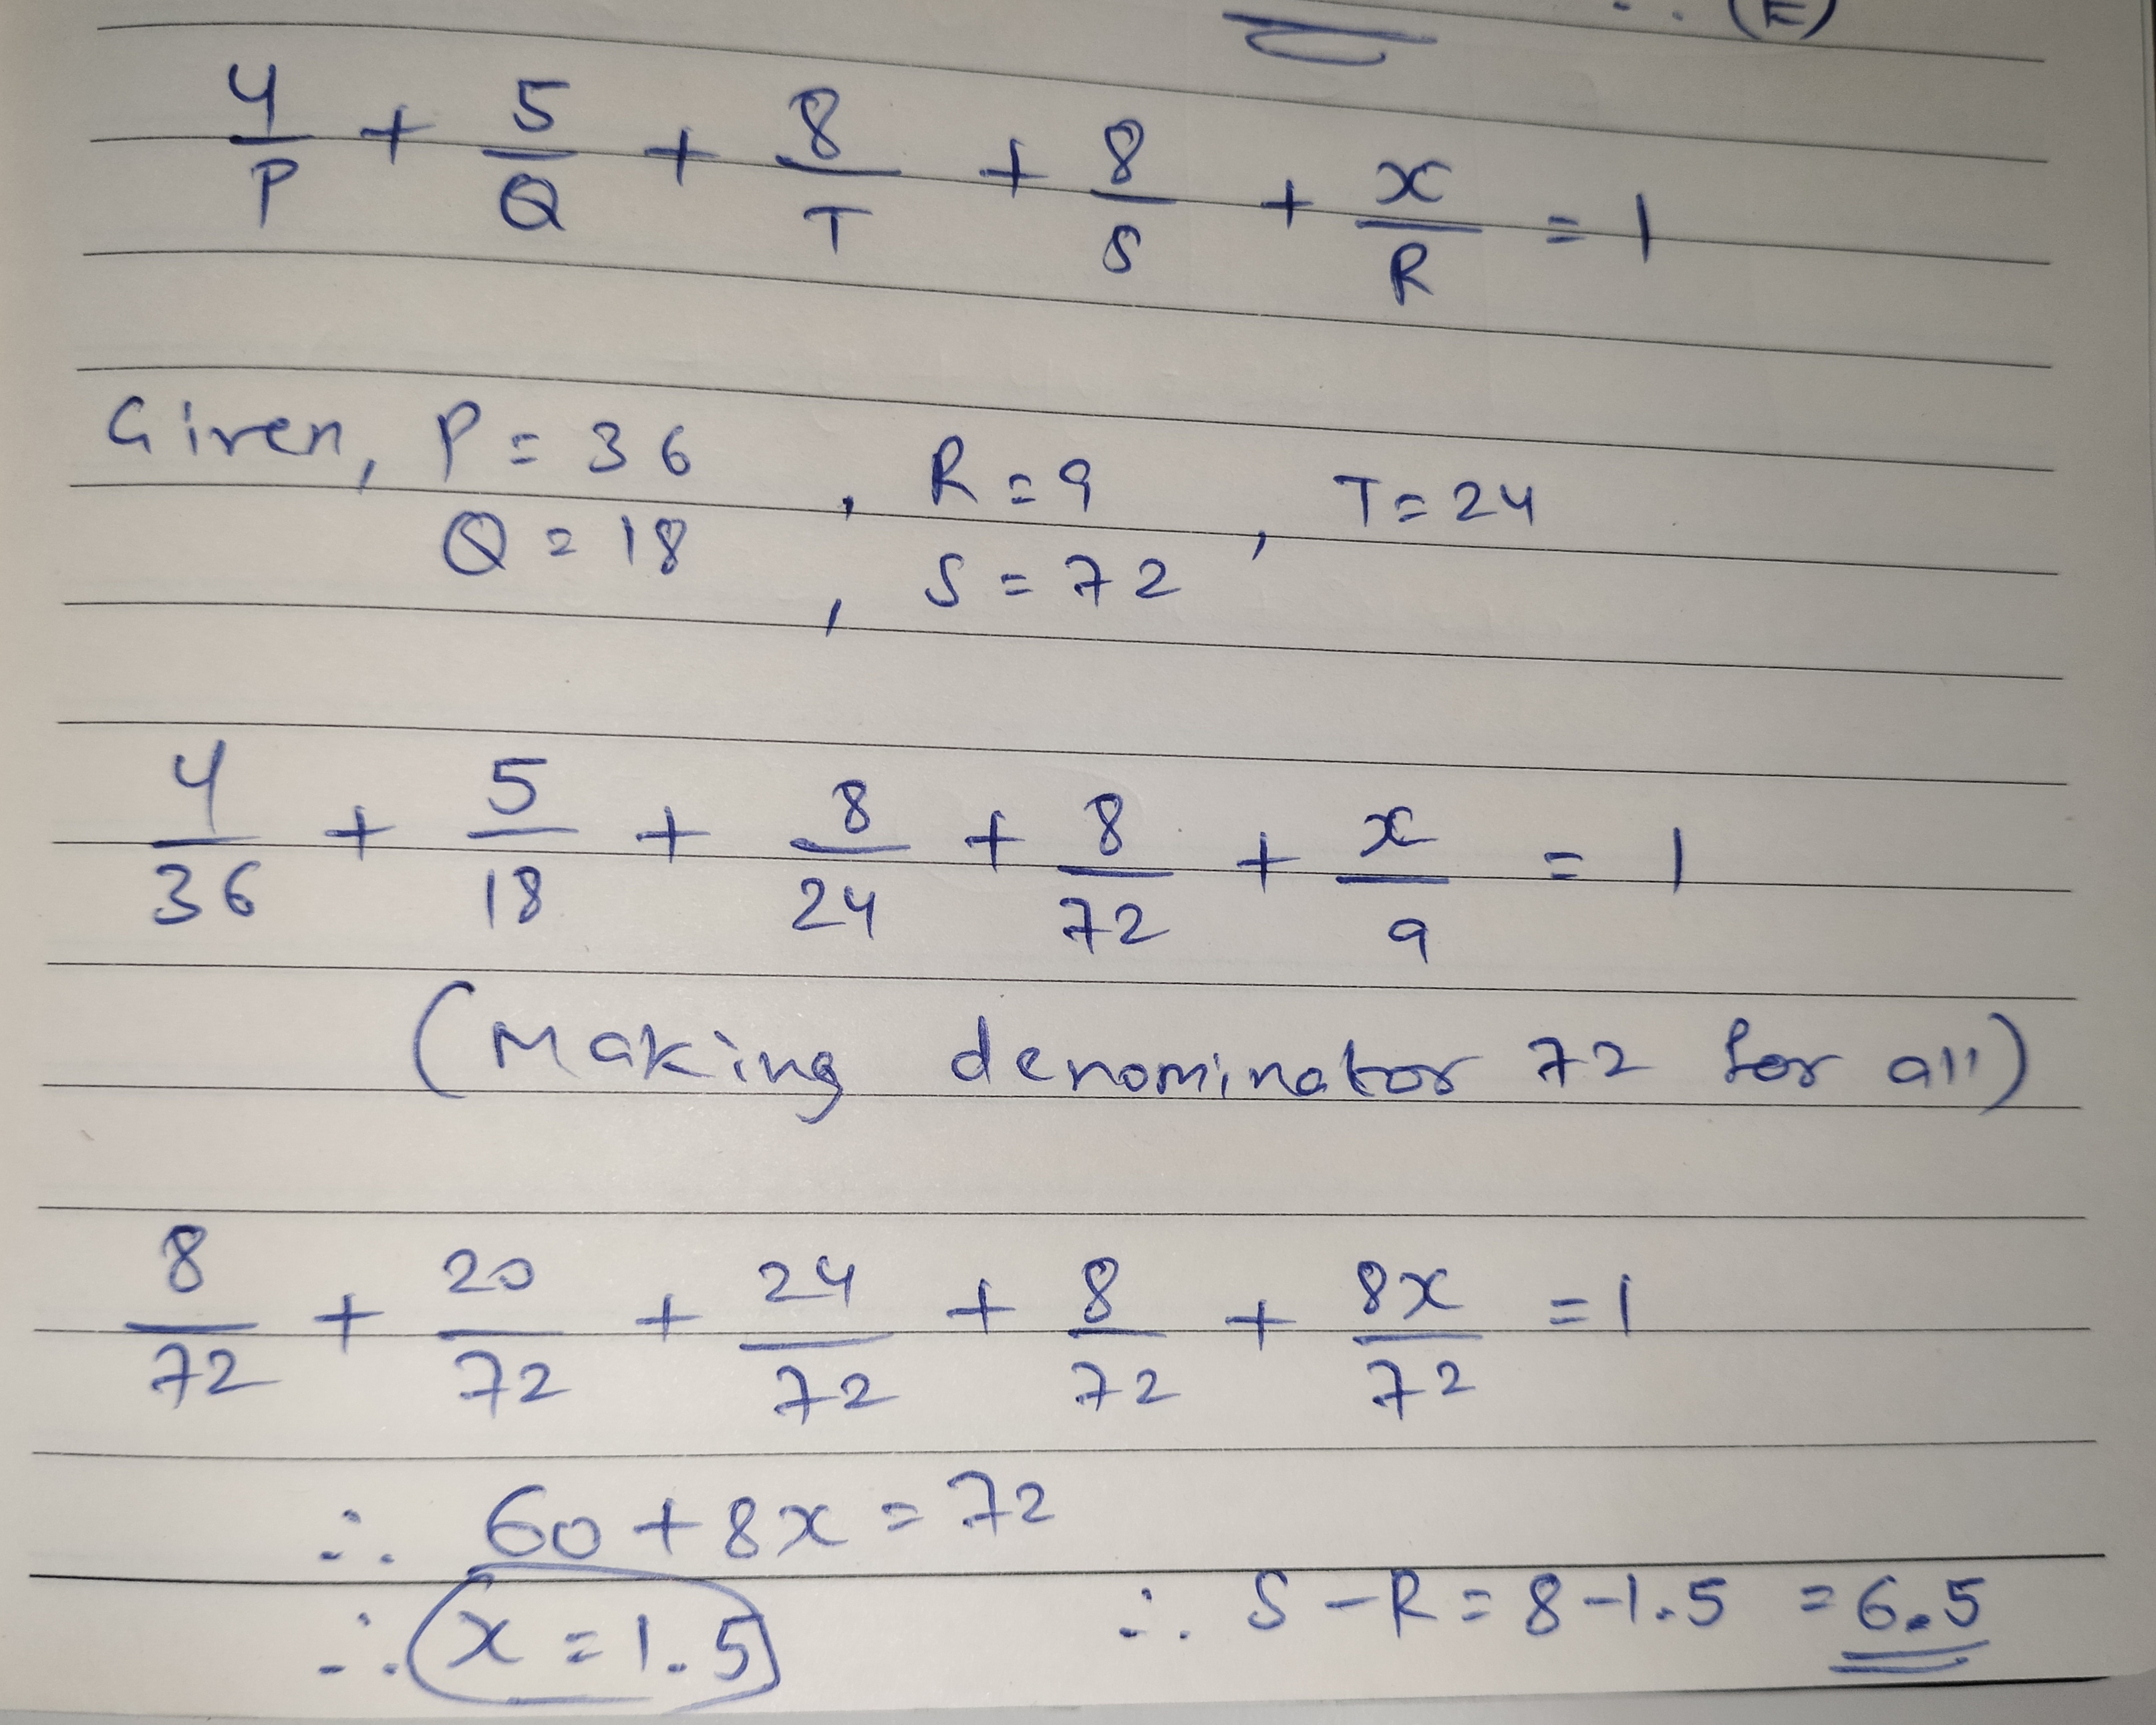 ∴ (E)
4/P + 5/Q + 8/T + 8/S + x/R = 1
Given, P = 36 , R = 9 , T = 24
Q = 18 , S = 72
4/36 + 5/18 + 8/24 + 8/72 + x/9 = 1
(Making denominator 72 for all)
8/72 + 20/72 + 24/72 + 8/72 + 8x/72 = 1
∴ 60 + 8x = 72
∴ x = 1.5 ∴ S - R = 8 - 1.5 = 6.5